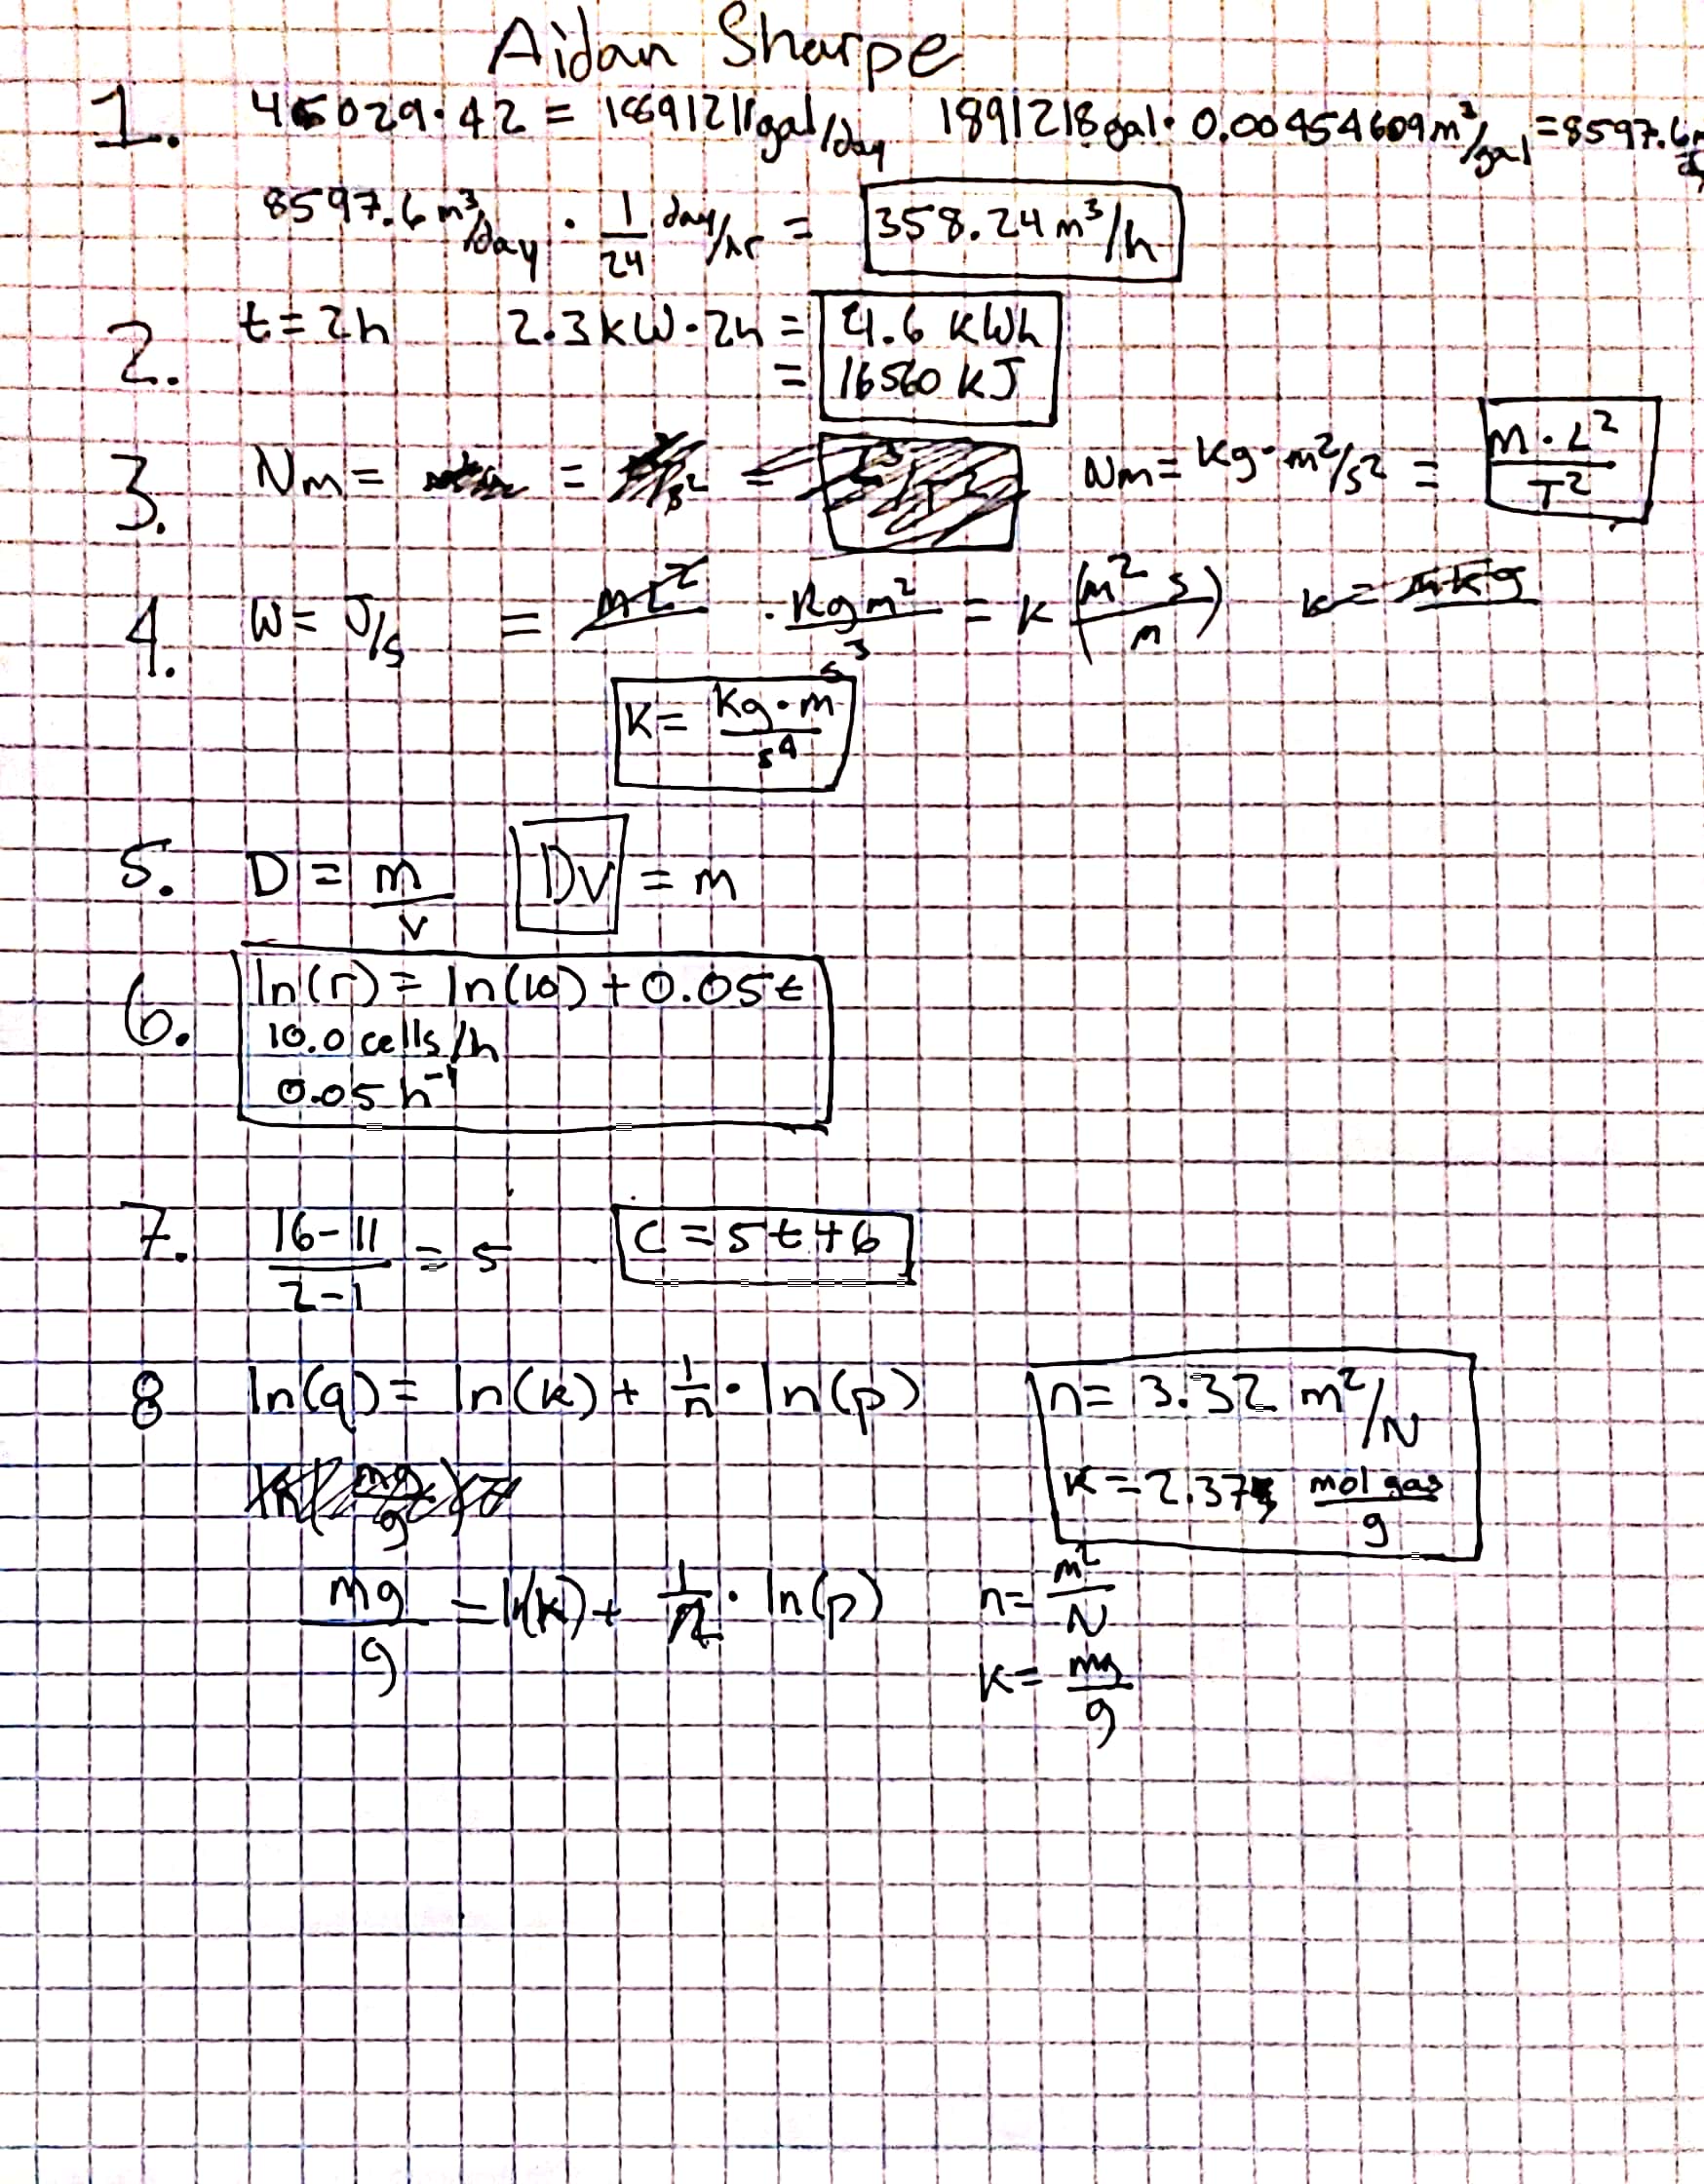 Aidan Sharpe
1. 45029·42 = 1891218gal/day 1891218gal · 0.00454609m³/gal = 8597.6
8597.6 m³/day · 1/24 day/hr = 358.24 m³/h
2. t = 2h 2.3kW·2h = 4.6 kWh
= 16560 kJ
3. Nm = = = Nm = kg·m²/s² = M·L²/T²
4. W = J/s = · kgm²/s³ = K (m² s/m)
K = kg·m/s⁴
5. D = m/V DV = m
6. ln(r) = ln(10) + 0.05t
10.0 cells/h
0.05 h⁻¹
7. 16-11/2-1 = 5 C = 5t+6
8 ln(q) = ln(k) + 1/n · ln(p) n = 3.32 m²/N
K = 2.37 mol gas/g
mg/g = ln(k) + 1/n · ln(p) n = m²/N
K = mg/g